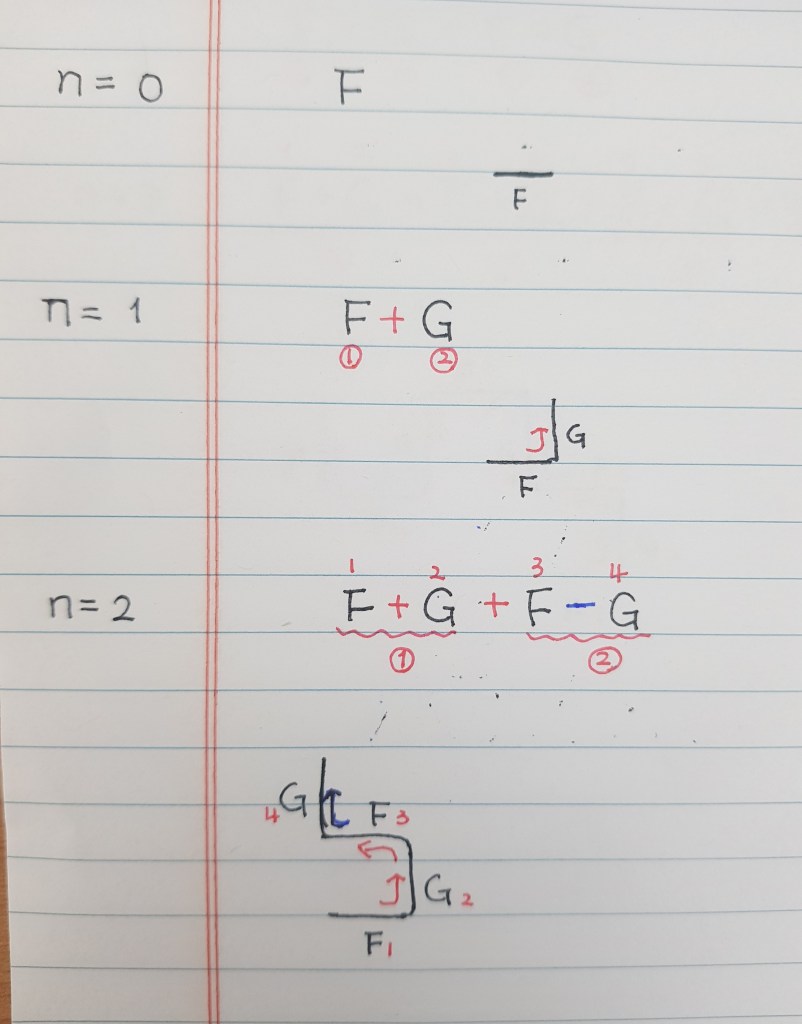 n = 0 F
F
n = 1 F + G
① ②
G
F
1 2 3 4
n = 2 F + G + F − G
① ②
4 G F 3
G 2
F 1